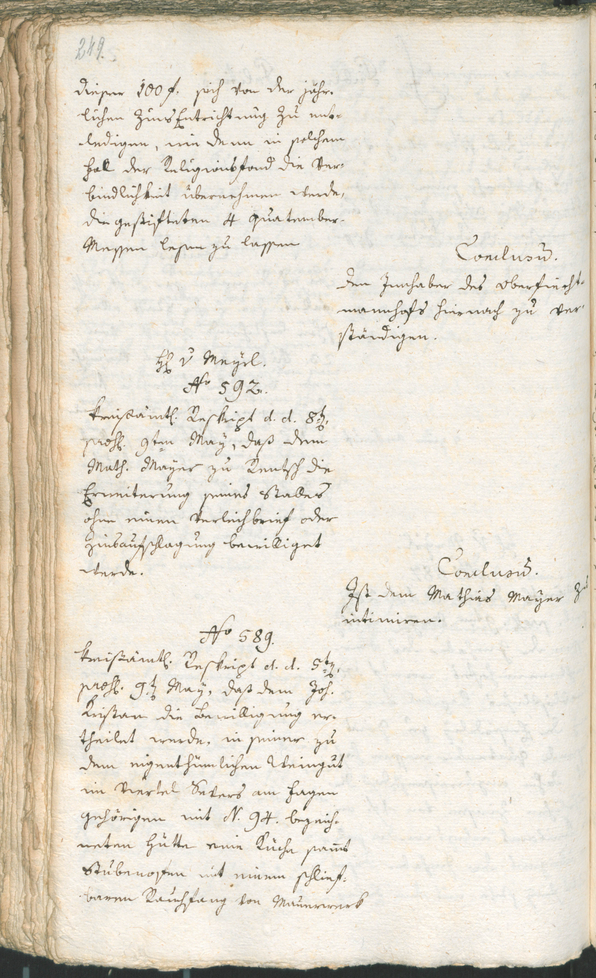 249.
dieser 100 f. sich von der jähr-
lichen Zinsentrichtung zu ent-
ledigen, wie denn in solchem
Fal der Religionsfond die Ver-
bindlichkeit übernehmen werde,
die gestifteten 4 Quatember-
Messen lesen zu lassen
Conclusum.
den Innhaber des Oberfiecht-
mannhofs hiernach zu ver-
ständigen.
H. v Mayrl.
No 592.
Kreisämtl. Reskript d. d. 8t
praes. 9ten May, daß dem
Math. Mayer zu Rentsch die
Erweiterung seines Stalles
ohne einen Verleichbrief oder
Zinsaufschlagung bewilliget
werde.
Conclusum.
Ist dem Mathias Mayer zu
intimiren.
No 589.
Kreisämtl. Reskript d. d. 5t
praes. 9t May, daß dem Joh.
Kristan die Bewilligung er-
theilet werde, in seiner zu
dem eigenthümlichen Weingut
im Viertel Sakers am Hagen
gehörigen mit N. 94. bezeich-
neten Hütte eine Küche samt
Stubenofen mit einem schlief-
baren Rauchfang von Mauerwerk